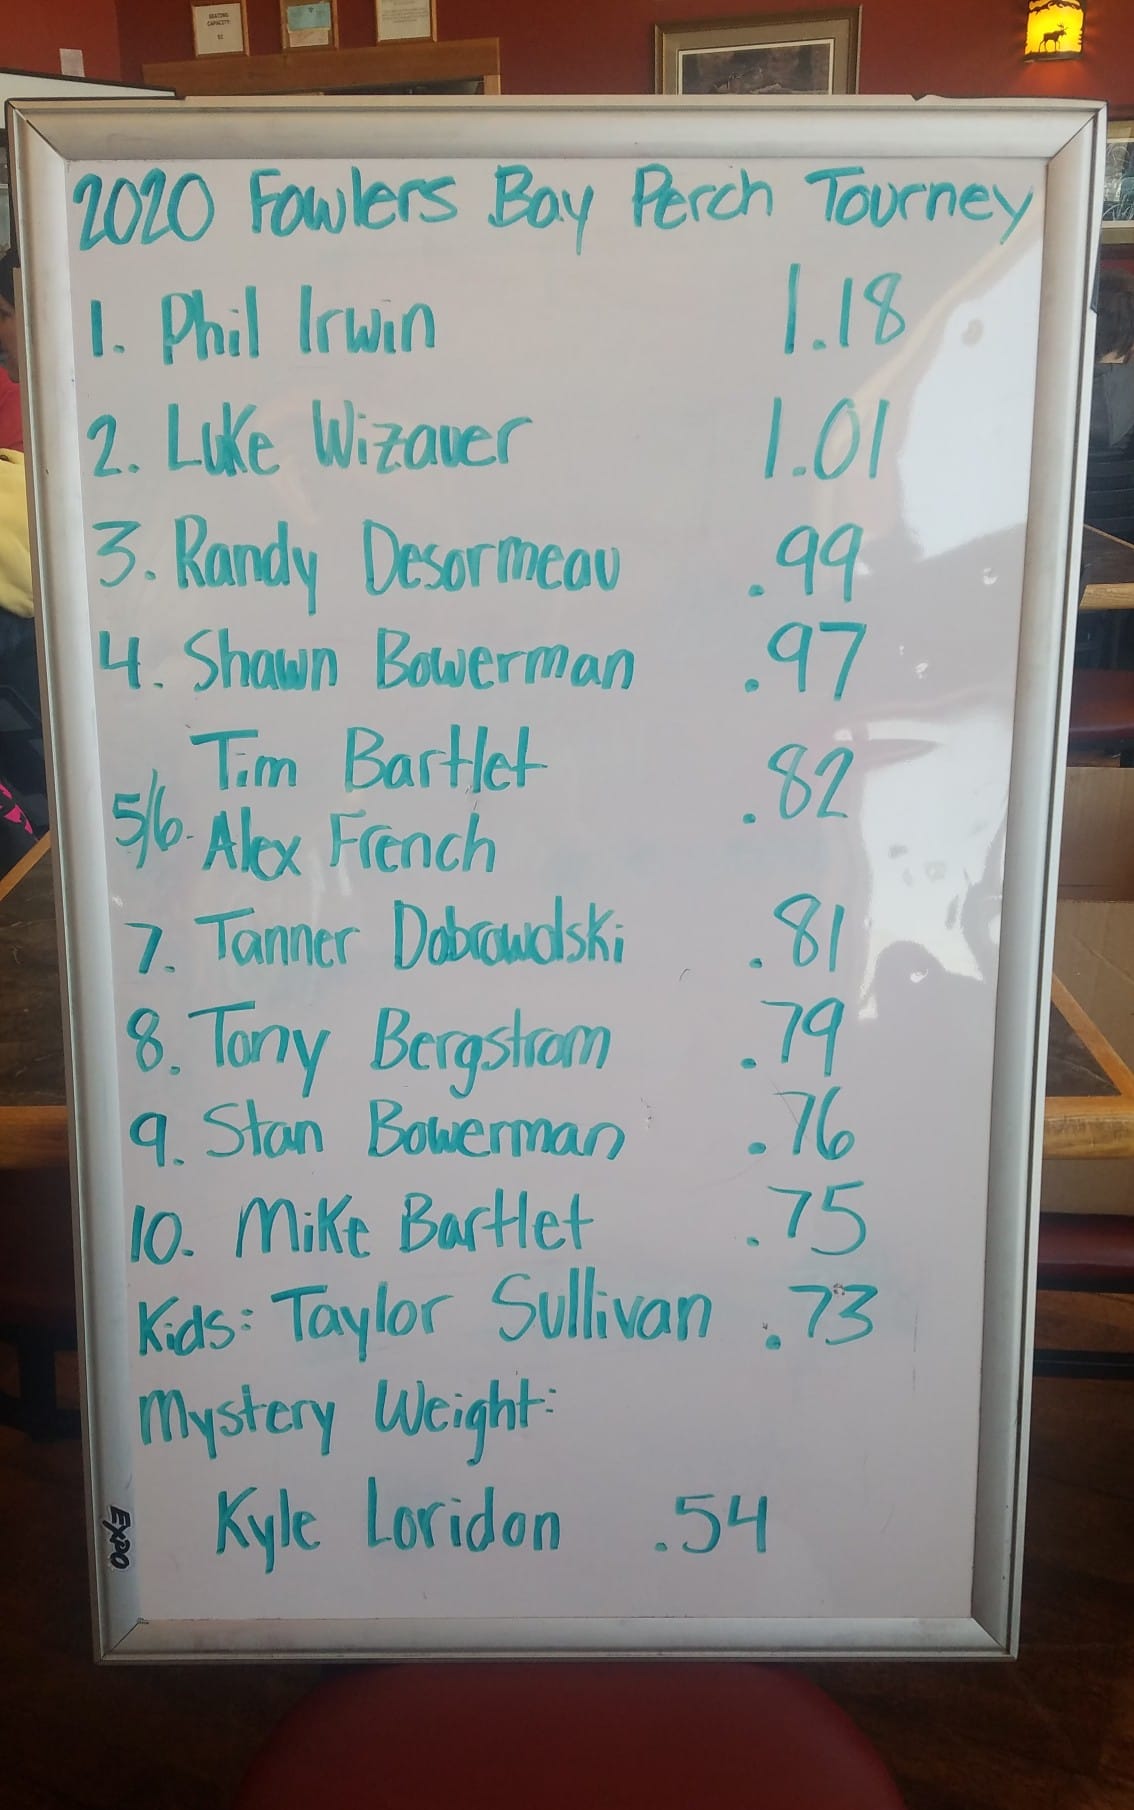 SEATING
CAPACITY:
2020 Fowlers Bay Perch Tourney
1. Phil Irwin 1.18
2. Luke Wizauer 1.01
3. Randy Desormeau .99
4. Shawn Bowerman .97
Tim Bartlet .82
5/6. Alex French
7. Tanner Dobrowolski .81
8. Tony Bergstrom .79
9. Stan Bowerman .76
10. Mike Bartlet .75
Kids: Taylor Sullivan .73
Mystery Weight:
Kyle Loridon .54
EXPO